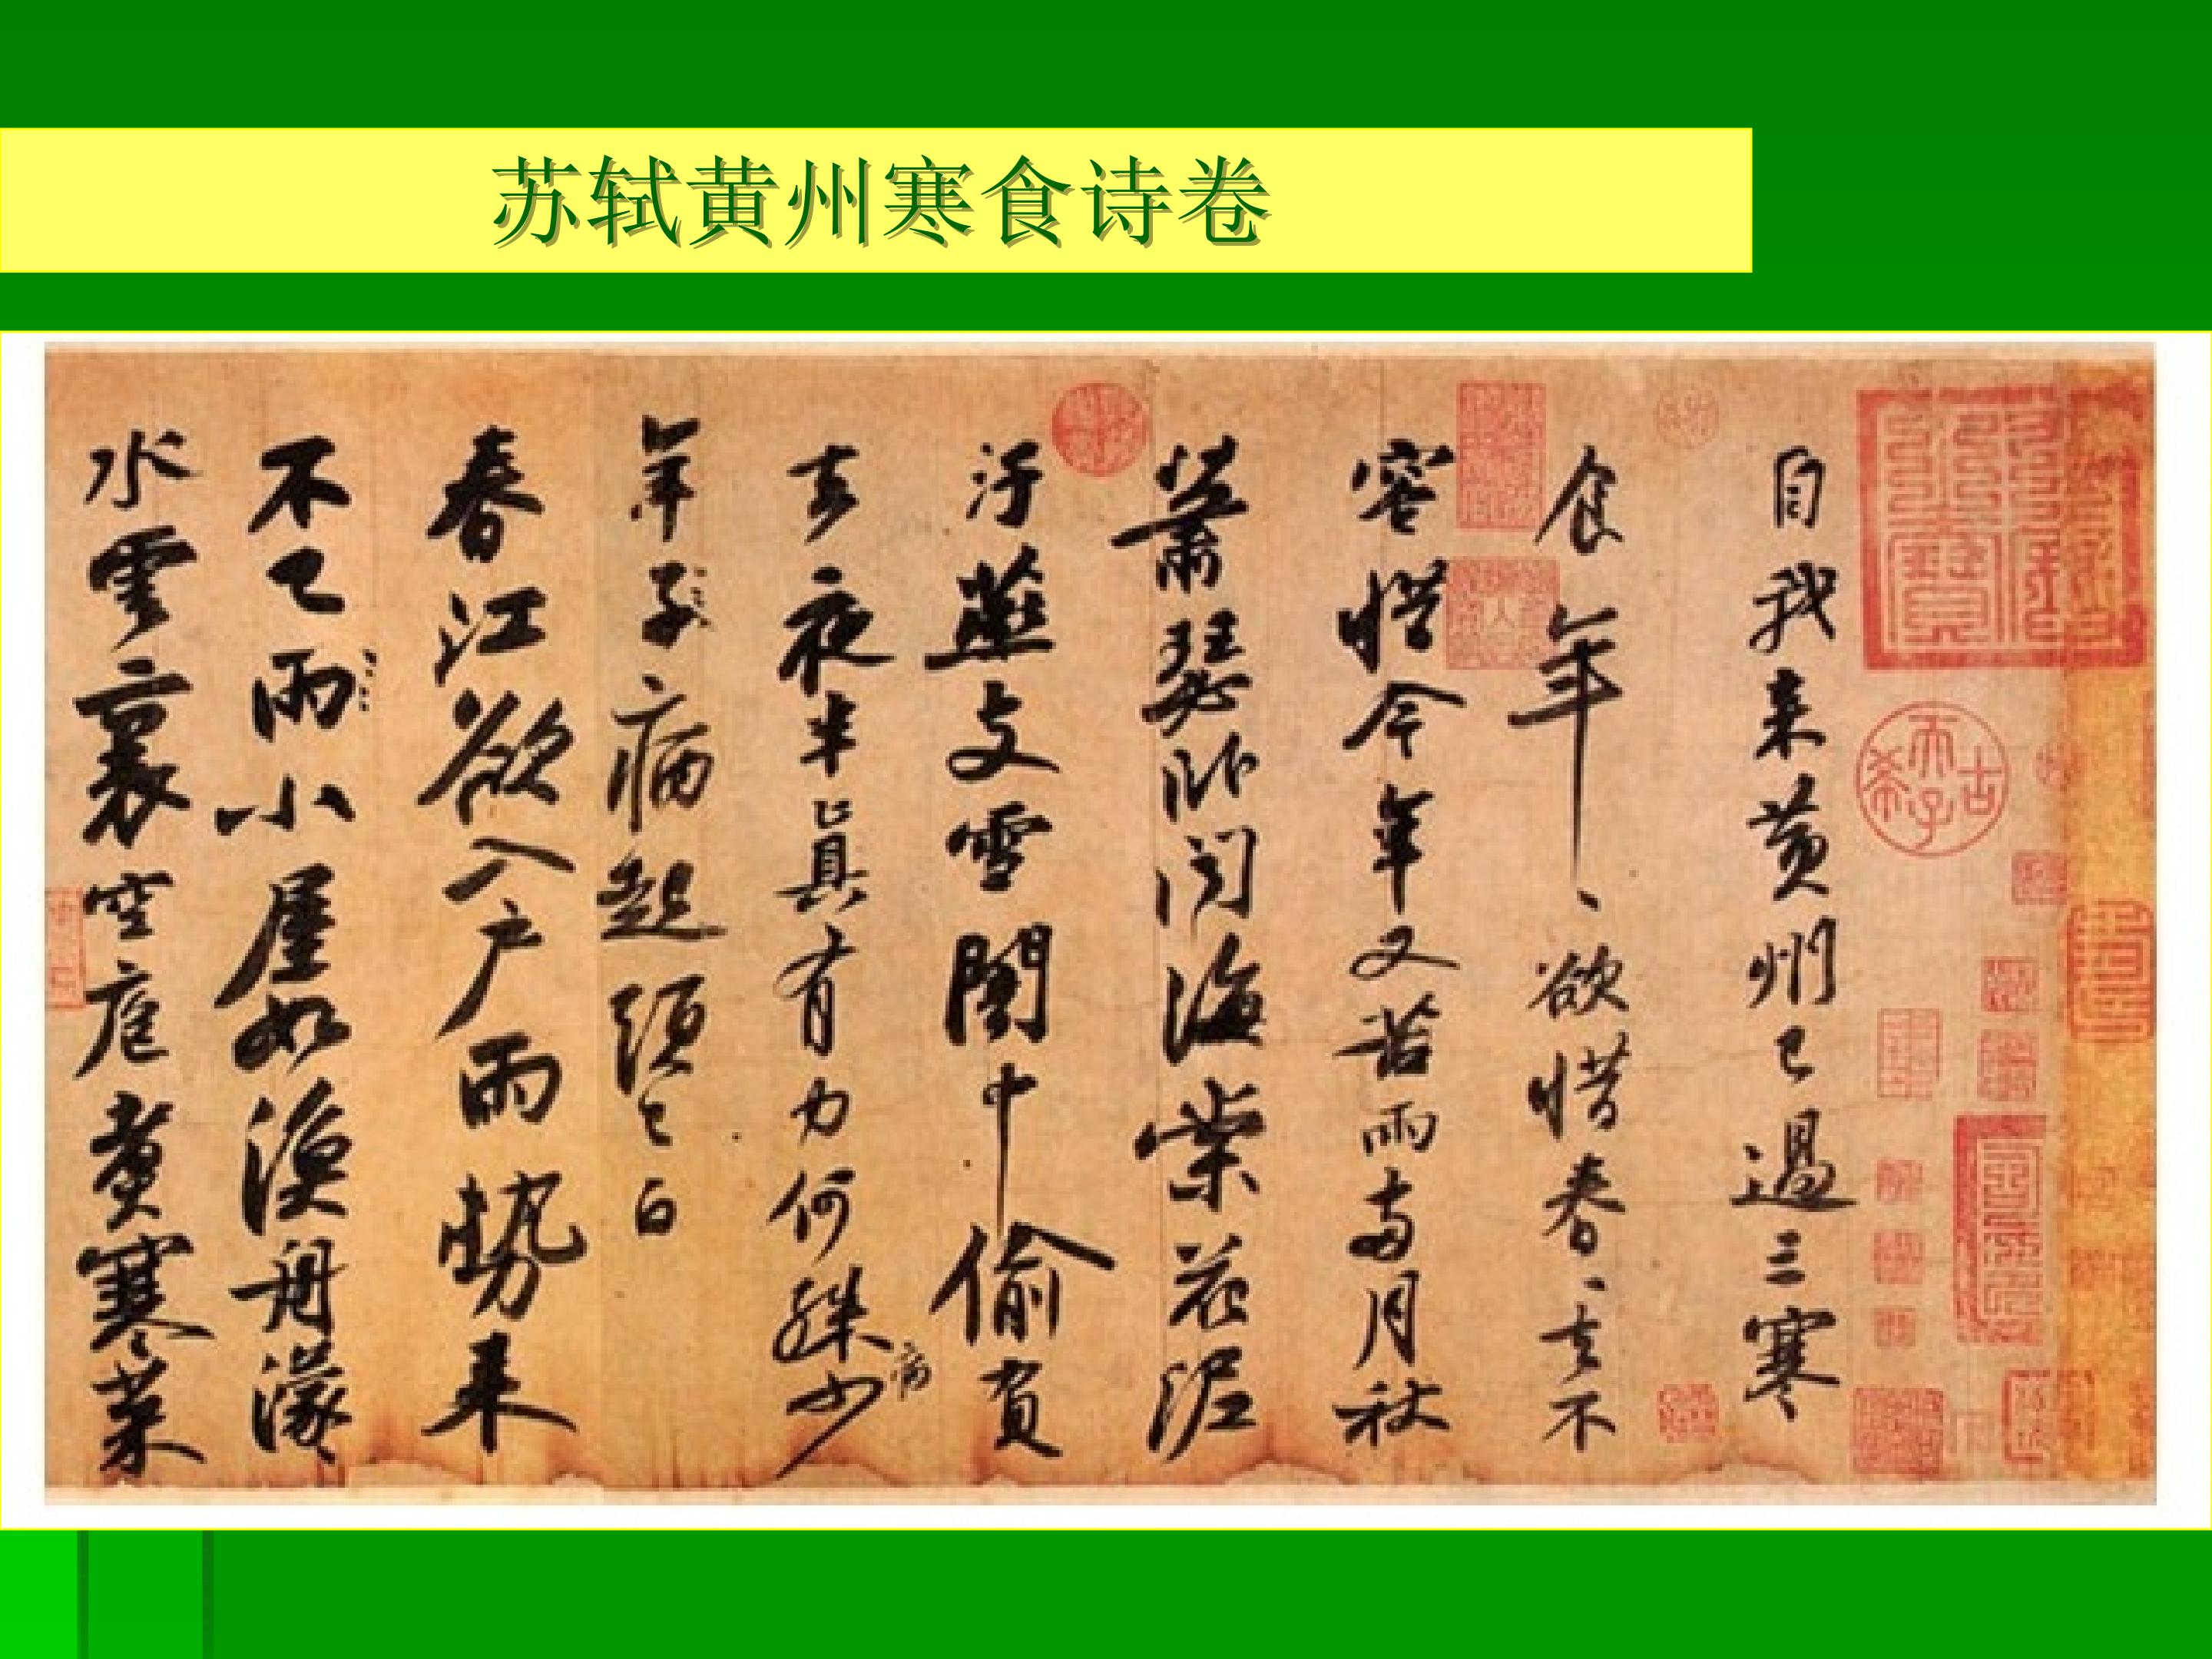 苏轼黄州寒食诗卷
自我来黄州已過三寒
食年、欲惜春、去不
容惜今年又苦雨兩月秋
蕭瑟卧聞海棠花泥
汙燕支雪闇中偷負
去夜半真有力何殊少
年子病起頭已白
病
春江欲入户雨勢来
不已雨小屋如漁舟濛
水雲裏空庖煮寒菜
古希天子